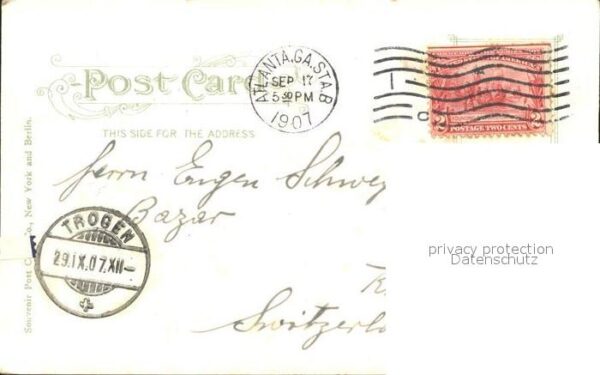 Post Card
ATLANTA, GA. STA. B
SEP 17
5 30 PM
1907
1
POSTAGE TWO CENTS
2 2
THIS SIDE FOR THE ADDRESS
Herrn Eugen
Bazar
Switzerl
TROGEN
29.IX.07.XII-
Souvenir Post Co., New York and Berlin.
privacy protection
Datenschutz